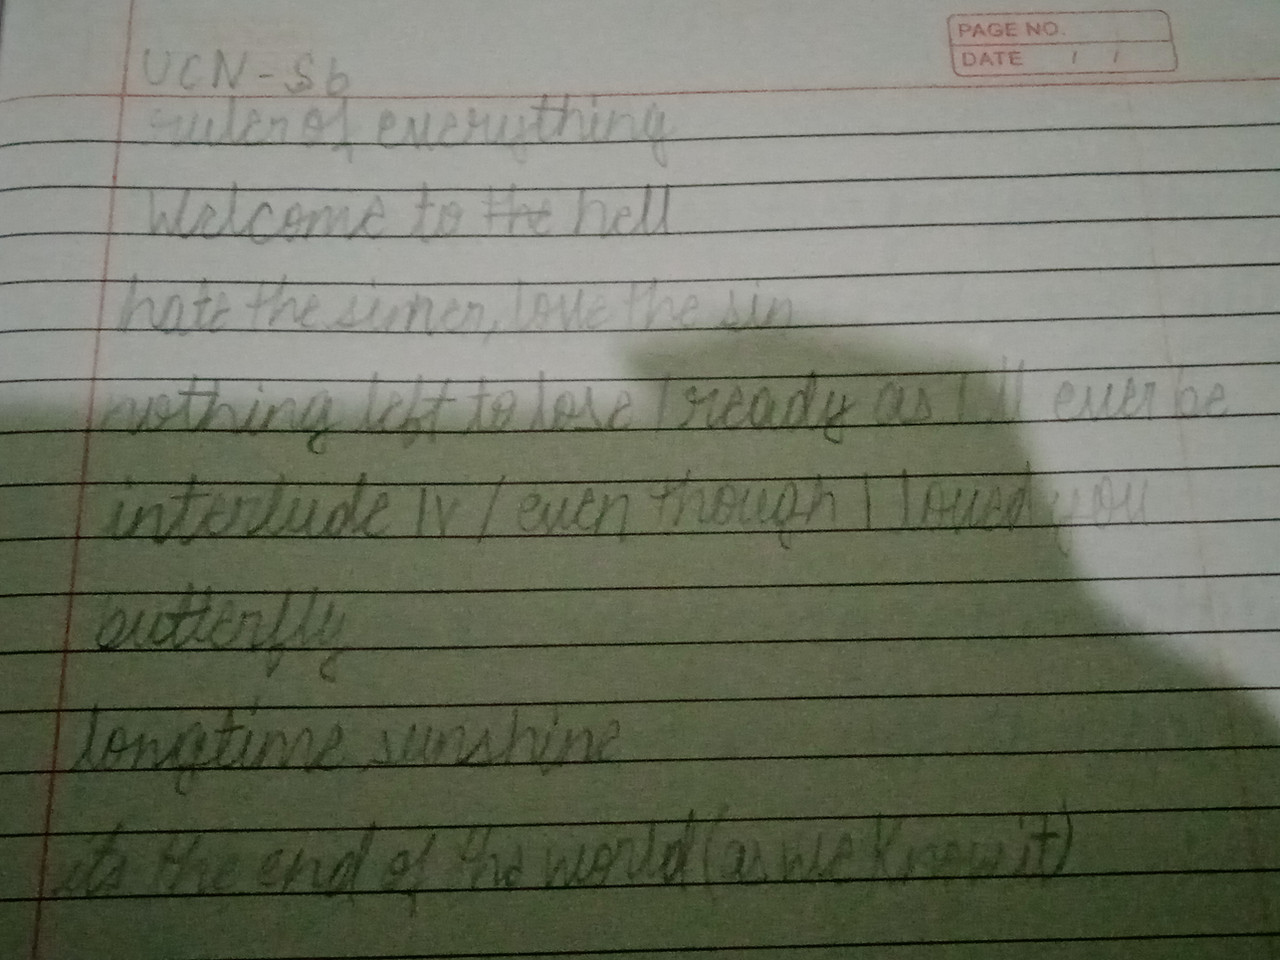 PAGE NO.
DATE / /
UCN - Sb
ruler of everything
Welcome to the hell
hate the sinner, love the sin
nothing left to lose / ready as I'll ever be
interlude IV / even though I loved you
butterfly
longtime sunshine
its the end of the world (as we know it)